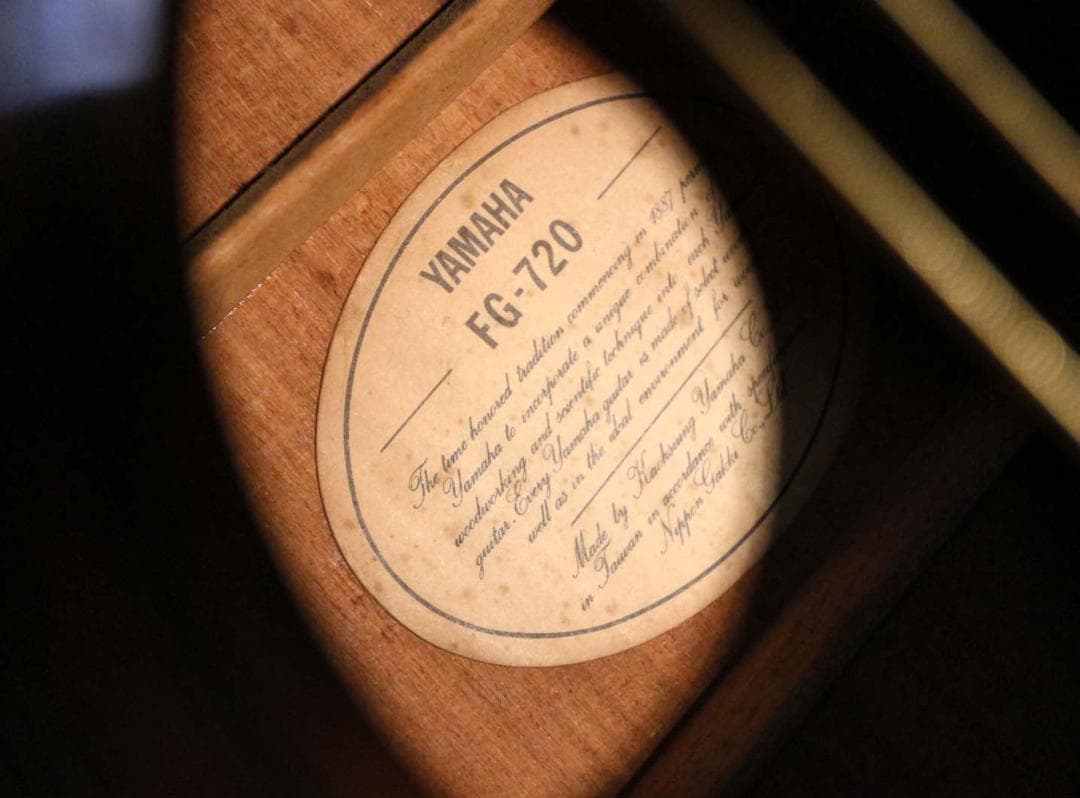 YAMAHA
FG-720
The time honored tradition commencing in 1887
Yamaha to incorporate a unique combination
woodworking and scientific technique into each
guitar. Every Yamaha guitar is made of select
well as in the ideal environment for
Made by Kaohsiung Yamaha
in Taiwan in accordance with
Nippon Gakki Co., Ltd.